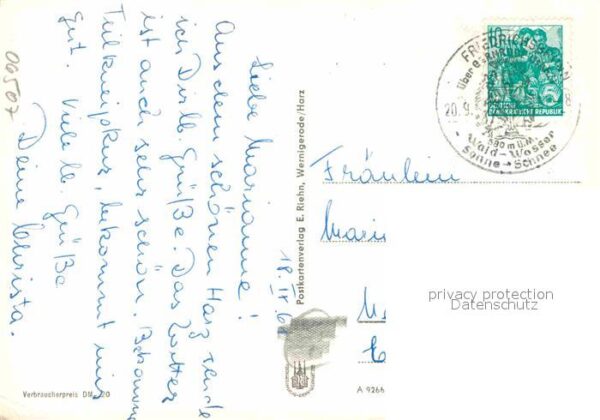 06507
18. IX. 6
Liebe Marianne!
Aus dem schönen Harz sende
ich Dir lb. Grüße. Das Wetter
ist auch sehr schön. Bekomm
Teilkneippkur, bekommt mir
gut. Viele lb. Grüße
Deine Christa.
Verbraucherpreis DM -,20
Postkartenverlag E. Riehn, Wernigerode/Harz
A 9266
FRIEDRICHSBRUNN
20.9.
8
Wald - Wasser
Sonne - Schnee
DEUTSCHE
DEMOKRATISCHE REPUBLIK
5
Fräulein
privacy protection
Datenschutz